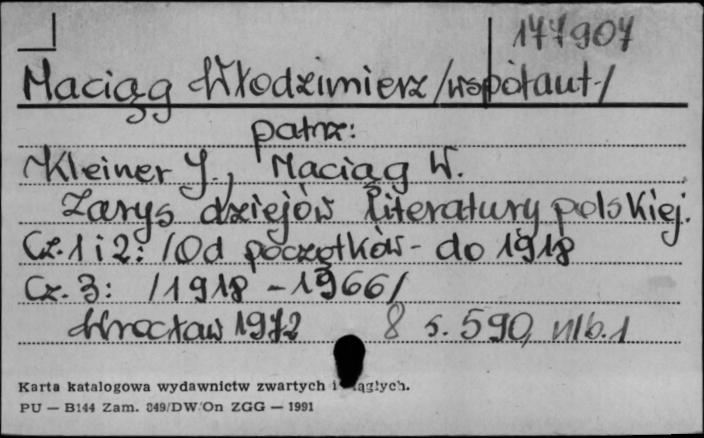 177907
Maciąg Włodzimierz /współaut/
patrz:
Kleiner J., Maciąg W.
Zarys dziejów literatury polskiej.
Cz. 1 i 2: /Od początków - do 1918
Cz. 3: /1918 - 1966/
Wrocław 1972 8 s. 590, nlb. 1
Karta katalogowa wydawnictw zwartych i ciągłych.
PU — B144 Zam. 849/DW/On ZGG — 1991